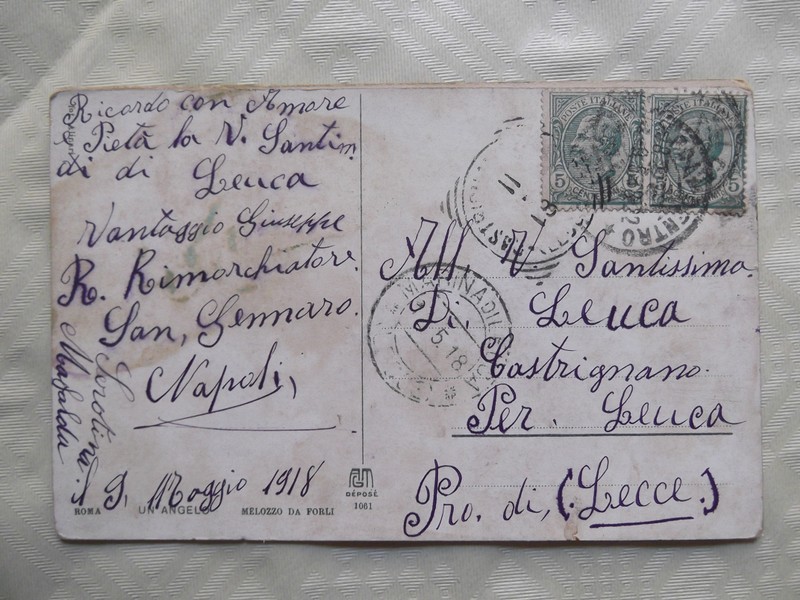 Ricordo con Amore
Pietà la V. Santim
di di Leuca
Vantaggio Giuseppe
R. Rimorchiatore
San, Gennaro.
Napoli,
Mafalda
Serotina
19, Maggio 1918
ROMA UN ANGELO MELOZZO DA FORLI
DÉPOSÉ
1061
POSTE ITALIANE
5 CENT 5
POSTE ITALIANE
5
CENTRO
MARINA DI
5.18
All. V. Santissima.
Di. Leuca
Castrignano.
Per. Leuca
Pro. di, (Lecce.)